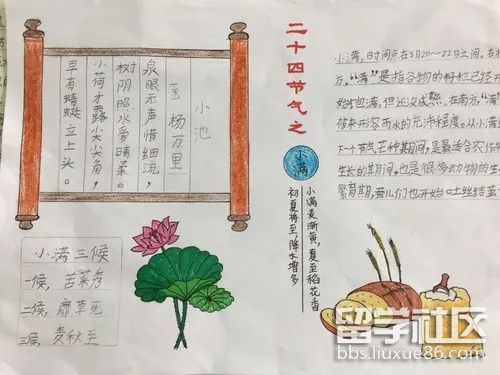 小池
杨万里
泉眼无声惜细流,
树阴照水爱晴柔。
小荷才露尖尖角,
早有蜻蜓立上头。
二十四节气之
小满
小满麦渐黄,夏至稻花香
初夏将至,降水增多
小满,时间点在5月20~22日之间。在
方,“满”是指谷物的籽粒已经
始饱满,但还没成熟。在南方,“满”
被来形容雨水的充沛程度。从小满
下一个节气芒种期间,是最适合农作
生长的期间,也是很多动物的生
繁育期,蚕儿们也开始吐丝结茧
小满三候
一候,苦菜秀
二候,靡草死
三候,麦秋至
留学社区
bbs.liuxue86.com